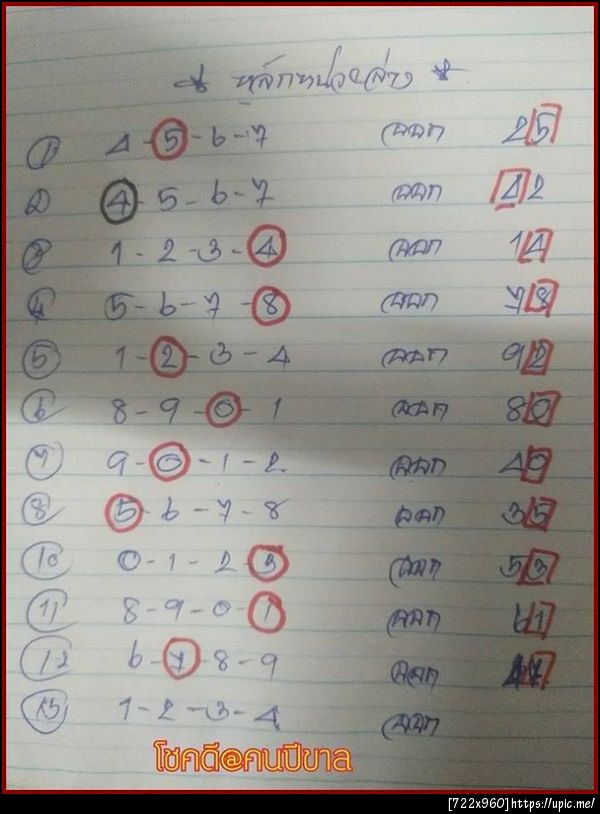 * หลักหน่วยล่าง *
1 4-5-6-7 ออก 25
2 4-5-6-7 ออก 42
3 1-2-3-4 ออก 14
4 5-6-7-8 ออก 78
5 1-2-3-4 ออก 92
6 8-9-0-1 ออก 80
7 9-0-1-2 ออก 40
8 5-6-7-8 ออก 35
10 0-1-2-3 ออก 53
11 8-9-0-1 ออก 61
12 6-7-8-9 ออก 47
1-2-3-4 ออก
โชคดี@ฅนปีขาล
[722x960]https://upic.me/